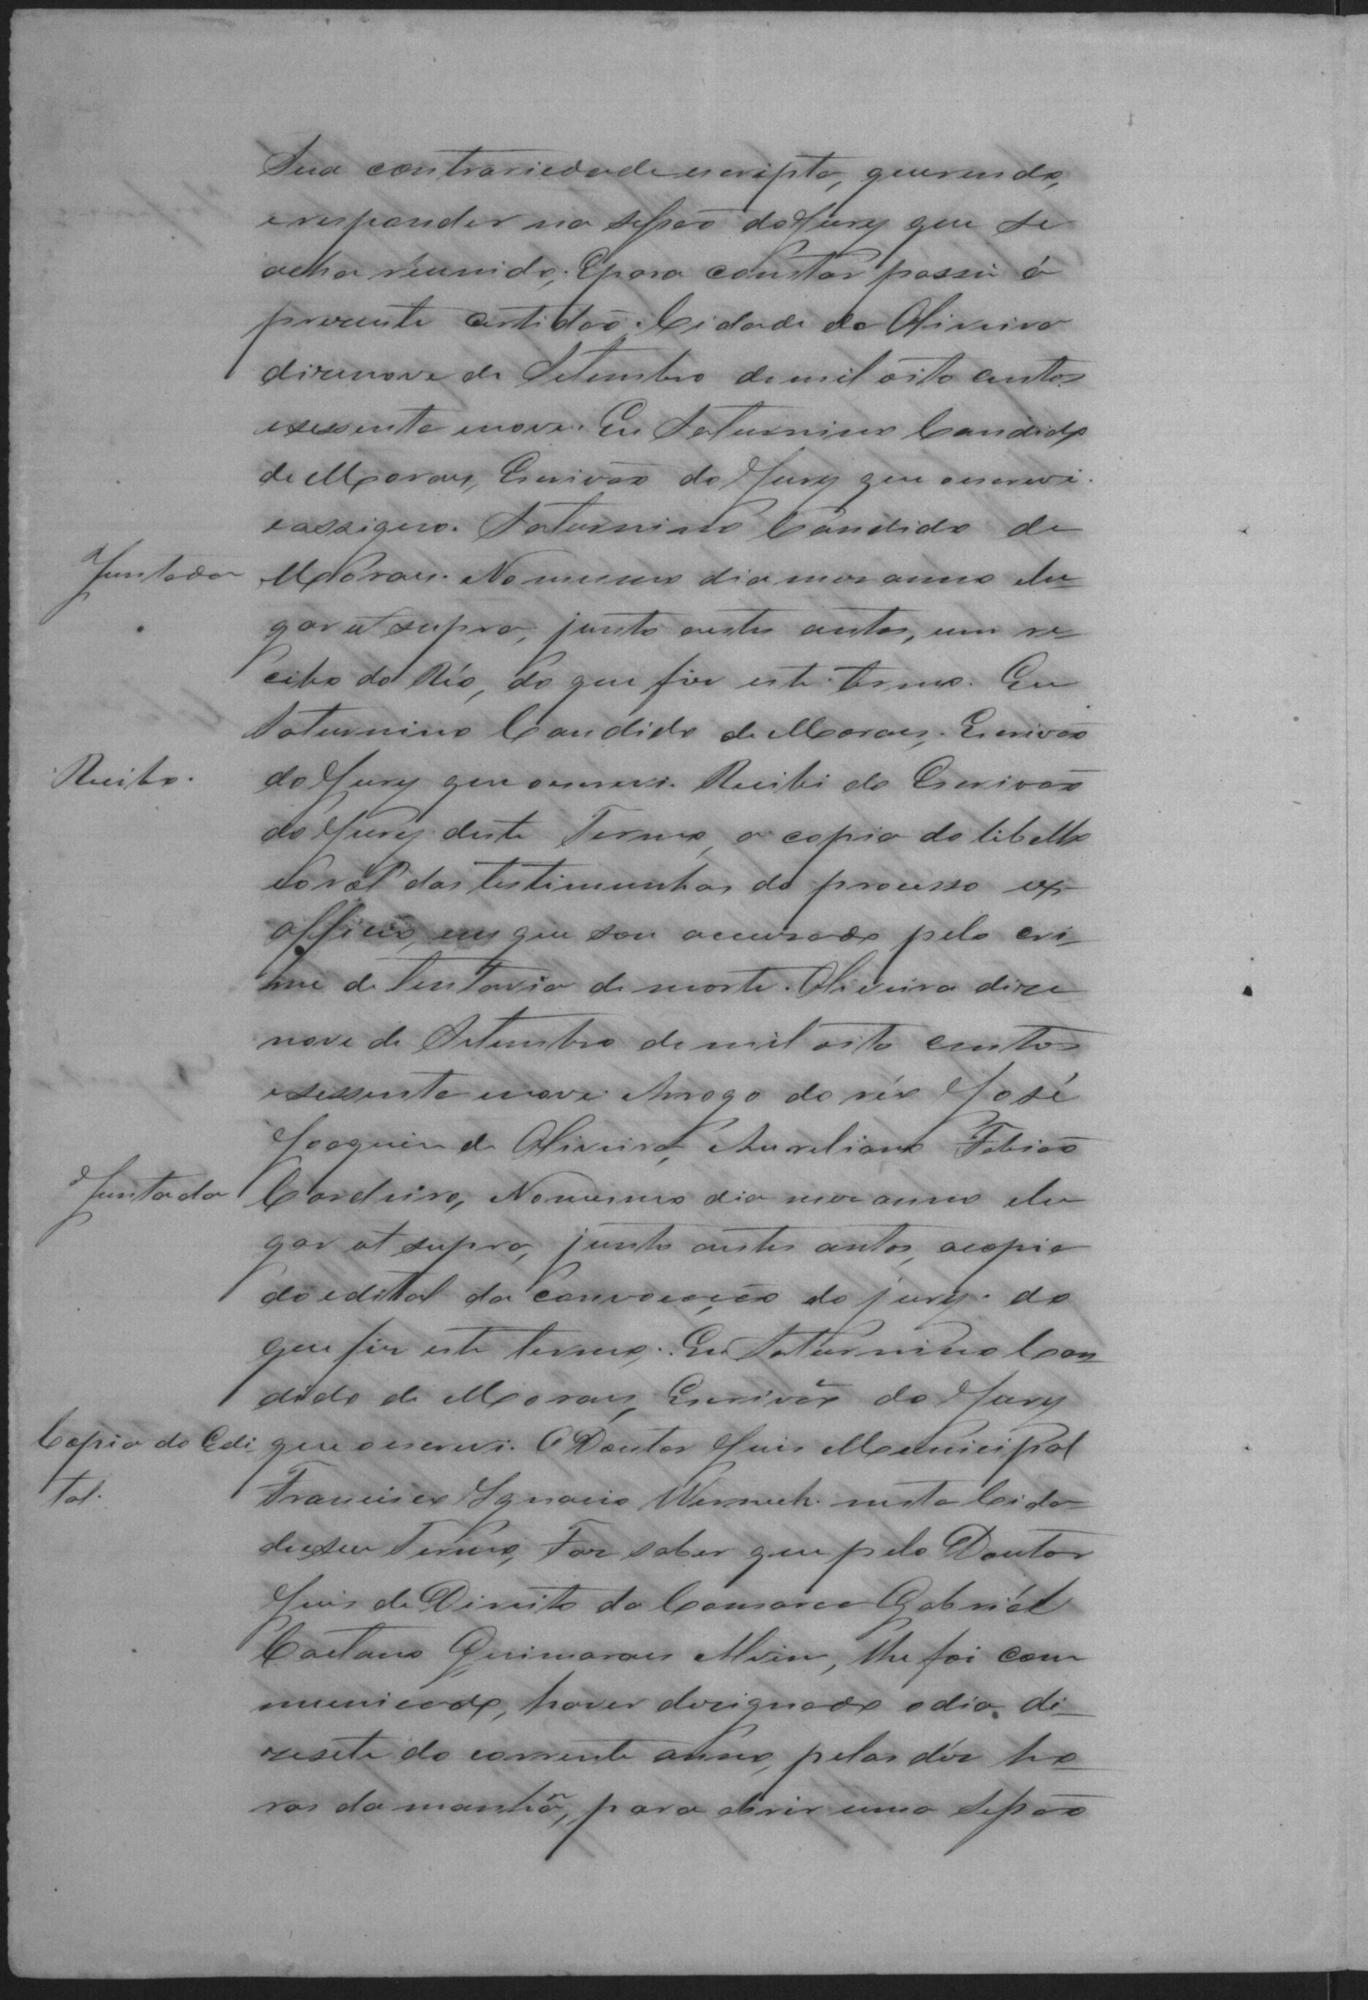 Sua contrariedade escripta, querendo,
e responder na sessão do Jury que se
acha reunido; E para constar passei a
presente certidão. Cidade da Oliveira
dizenove de Setembro de mil oito centos
e sessenta e nove. Eu Saturnino Candido
de Moraes, Escrivão do Jury que o escrevi
e assigno. Saturnino Candido de
Juntada Moraes. No mesmo dia mez anno e lu-
gar ut supra, junto a estes autos, um re-
cibo do Réo, do que fiz este termo. Eu
Saturnino Candido de Moraes, Escrivão
Recibo. do Jury que o escrevi. Recibi do Escrivão
do Jury deste Termo, a copia do libello
e o rol das testimunhas do processo ex-
officio, em que sou accusado pelo cri-
me de tentavia de morte. Oliveira dize
nove de Setembro de mil oito centos
e sessenta e nove. Arrogo do réo José
Joaquim de Oliveira, Aureliano Fabião
Juntada Cordeiro, No mesmo dia mez anno e lu-
gar ut supra, junto a estes autos, a copia
do edital da convocação do jury. do
que fiz este termo. Eu Saturnino Can
dido de Moraes, Escrivão do Jury
Copia do Edi que o escrevi. O Doutor Juis Municipal
tal. Francisco Ignacio Werneck. nesta Cida-
de e seu Termo, Faz saber que pelo Doutor
Juis de Direito da Comarca Gabriél
Caetano Guimaraes Alvim, lhe foi com
municado, haver dezignado o dia di-
zesete do corrente anno, pelas déz ho-
ras da manhã, para abrir uma sessão